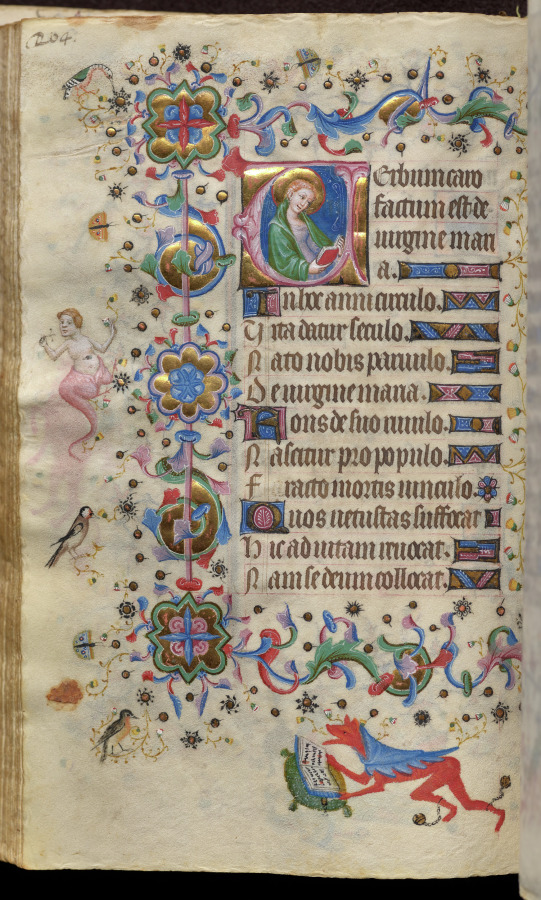 204.
Verbum caro
factum est de
uirgine mari
a.
In hoc anni circulo.
Vita datur seculo.
Nato nobis paruulo.
De uirgine maria.
Fons de suo riuulo.
Nascitur pro populo.
Fracto mortis uinculo.
Quos uetustas suffocat
Hic ad uitam reuocat.
Nam se deum collocat.